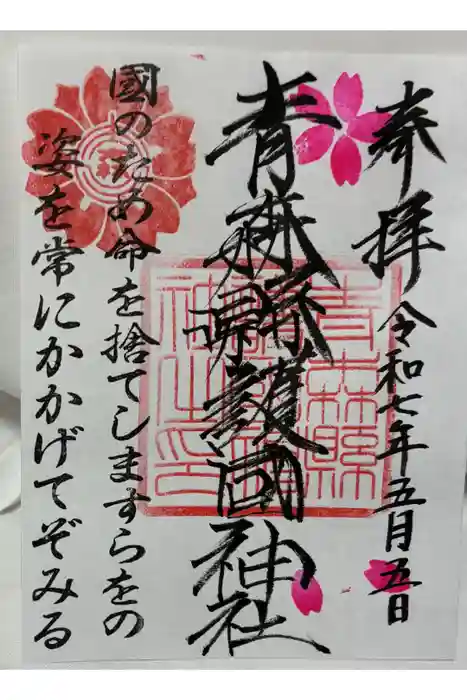 奉拝
令和七年五月五日
青森縣護國神社
青森縣護國神社之印
國のため命を捨てしますらをの
姿を常にかかげてぞみる